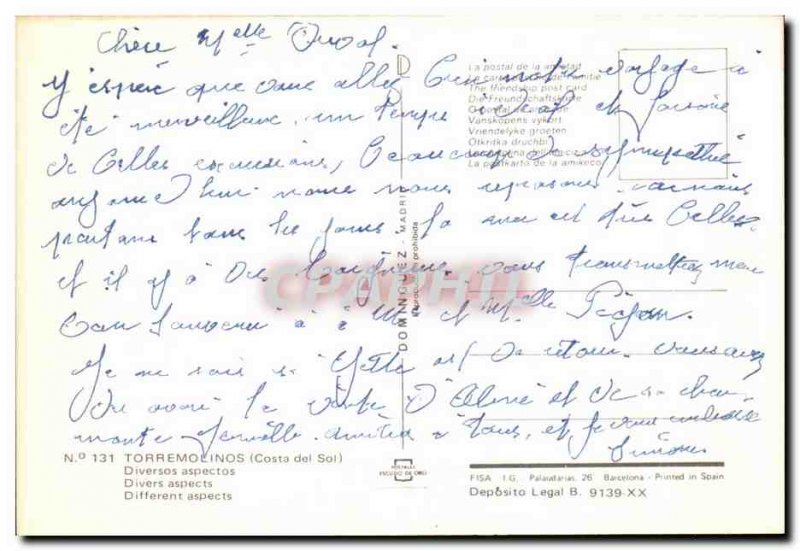 Chère Melle
J'espère que vous allez bien notre voyage a
été merveilleux un temps idéal et faisons
de belles excursions, beaucoup de sympathie
aujourd'hui nous nous reposons car nous
partons tous les jours. La mer est très belle
et il y a des baigneurs, vous transmettrez mon
bon souvenir à Mr et Melle
Je ne sais si est de retour. vous avez
dû avoir la visite d' et de sa
famille. amitiés à tous, et je vous embrasse
Simone
La postal de la amistad
La carte postale de l'amitié
The friendship post card
Die Freundschaftskarte
Vanskapens vykort
Vriendelyke groeten
Otkritka druchbi
La postkarto de la amikeco
DOMINGUEZ - MADRID
Reproducción prohibida
CPAPHIL
N.º 131 TORREMOLINOS (Costa del Sol)
Diversos aspectos
Divers aspects
Different aspects
POSTALES
ESCUDO DE ORO
FISA I.G. Palaudarias, 26 Barcelona - Printed in Spain
Depósito Legal B. 9139-XX